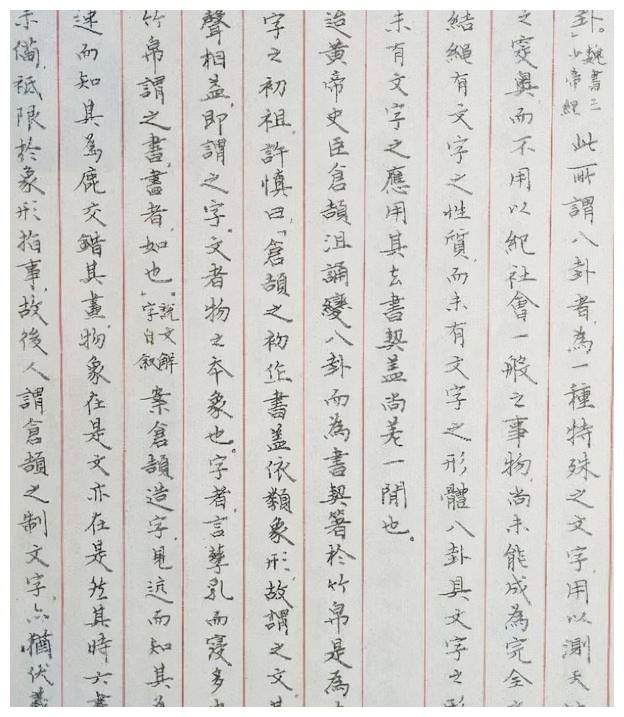 卦。魏書二少帝紀此所謂八卦者為一種特殊之文字用以測天
之窔奧而不用以紀社會一般之事物尚未能成為完全
結繩有文字之性質而未有文字之形體八卦具文字之形
未有文字之應用其去書契蓋尚差一閒也。
迨黃帝史臣倉頡沮誦變八卦而為書契箸於竹帛是為
字之初祖許慎曰「倉頡之初作書蓋依類象形故謂之文其
聲相益即謂之字。文者物之本象也。字者言孳乳而寖多也
竹帛謂之書書者如也」。說文解字自敘案倉頡造字見迒而知其為
速而知其為鹿交錯其畫物象在是文亦在是然其時六書
未備祇限於象形指事故後人謂倉頡之制文字亦猶伏羲